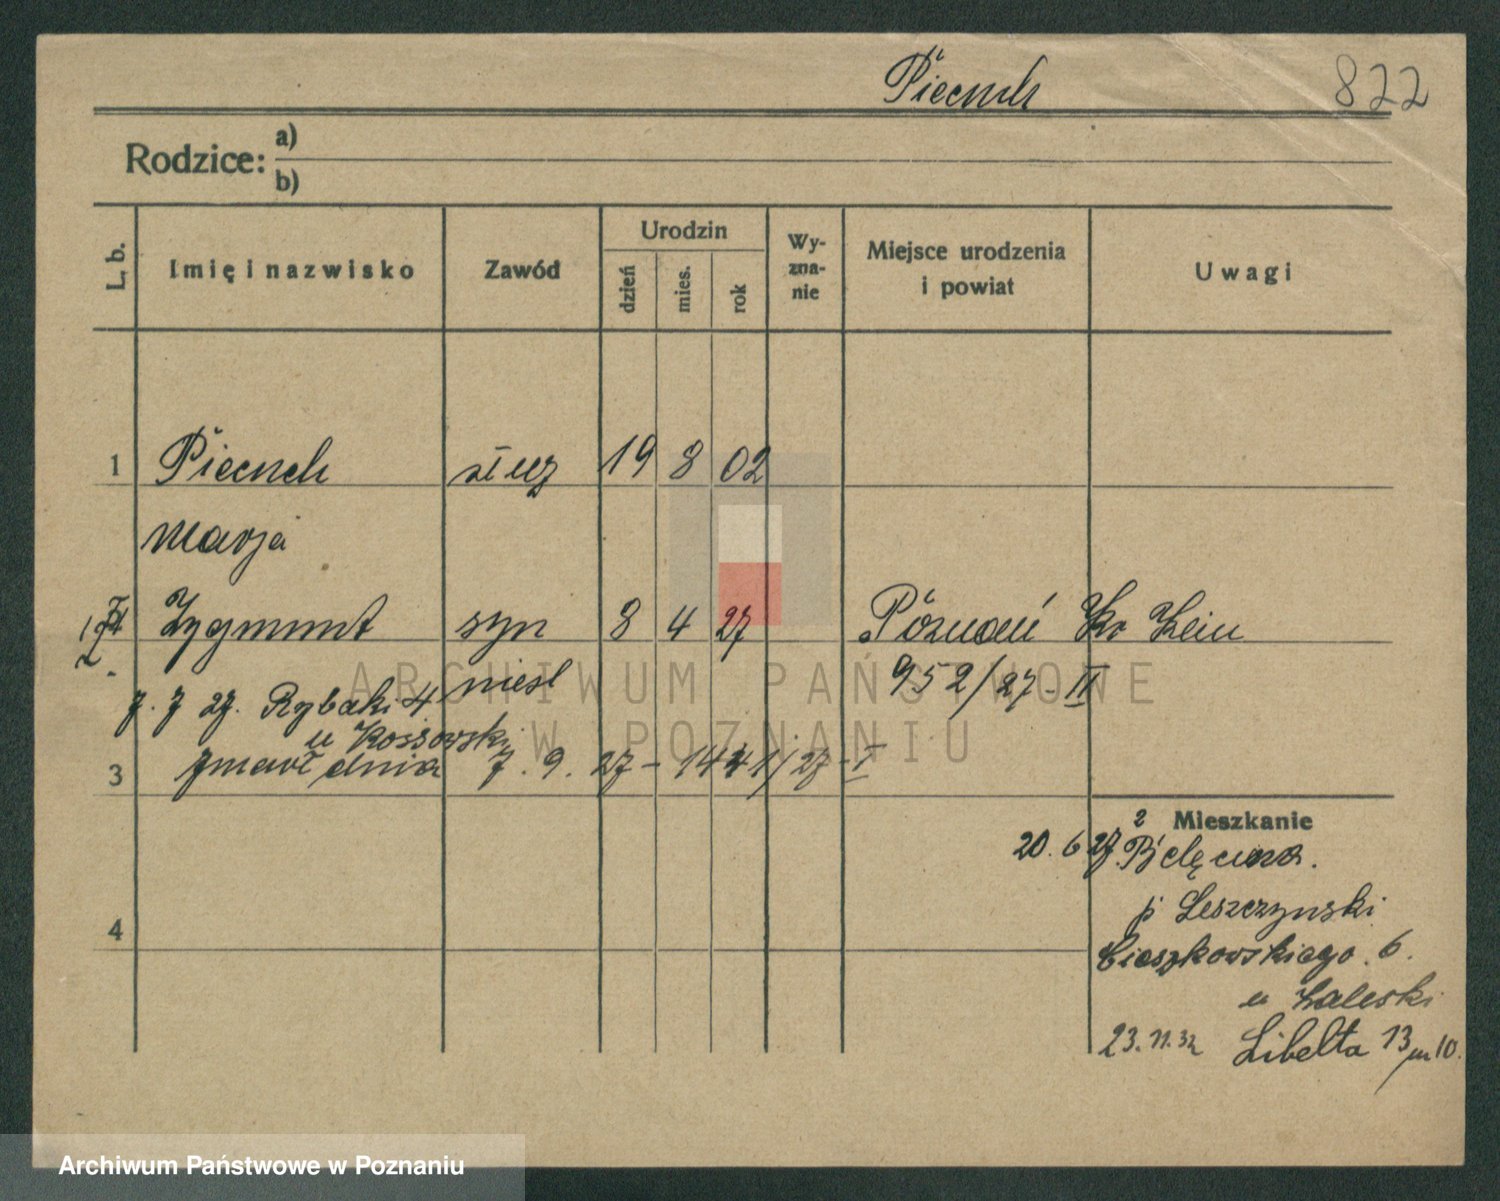 Piechch
822
Rodzice: a)
b)
L. b.
Imię i nazwisko
Zawód
Urodzin
dzień
mies.
rok
Wy-
zna-
nie
Miejsce urodzenia
i powiat
Uwagi
1 służ 19 8 02
Marja
Zygmunt syn 8 4 27 Poznań
niesl 952/27-II
7. 7 27. Rybaki 4
u Kossowski
3 zmarł dnia 7. 9. 27 - 1441/27-I
Mieszkanie
20. 6 27 z Belęcina.
p Leszczynski
4
Cieszkowskiego. 6.
u Zaleski
23.11.32 Libelta 13 m 10.
ARCHIWUM PAŃSTWOWE
W POZNANIU
Archiwum Państwowe w Poznaniu